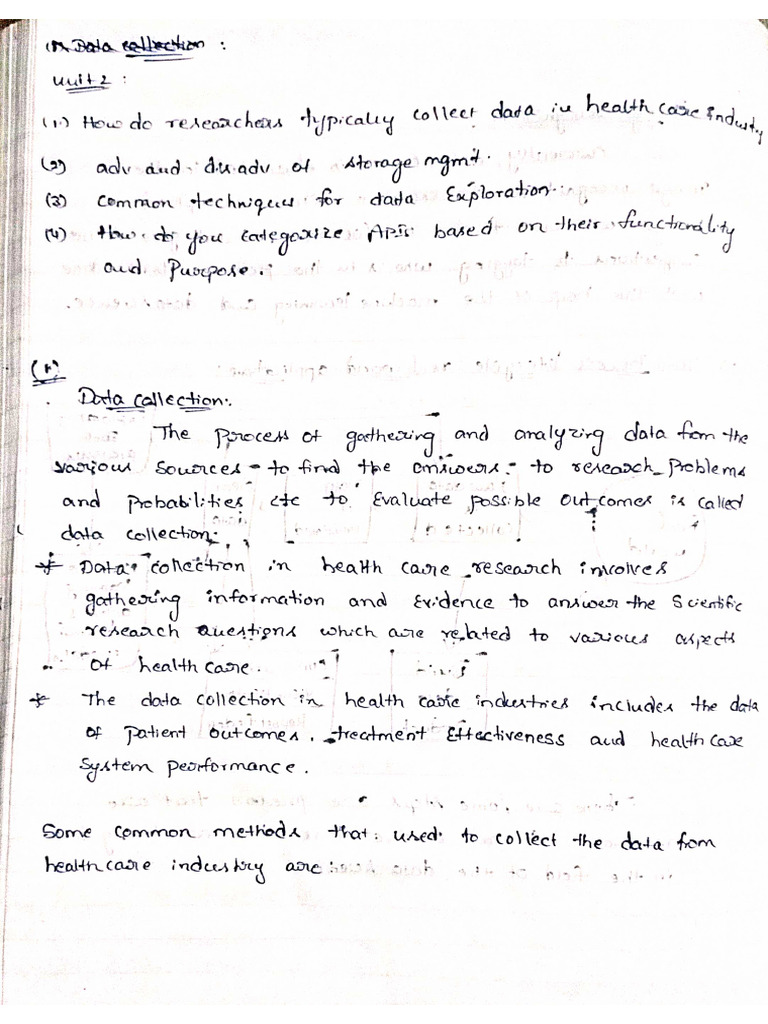 (1) Data collection :
Unit 2 :
(1.) How do researchers typically collect data in health care industry
(2) adv and disadv of storage mgmt.
(3) common techniques for data Exploration.
(4) How do you categorize APIs based on their functionality
and Purpose.
(1)
Data collection:
The process of gathering and analyzing data from the
various sources to find the answers to research problems
and Probabilities etc to Evaluate possible outcomes is called
data collection.
* Data collection in health care research involves
gathering information and Evidence to answer the Scientific
research questions which are related to various aspects
of health care.
* The data collection in health care industries includes the data
of patient outcomes, treatment Effectiveness and health care
System performance.
Some common methods that used to collect the data from
health care industry are